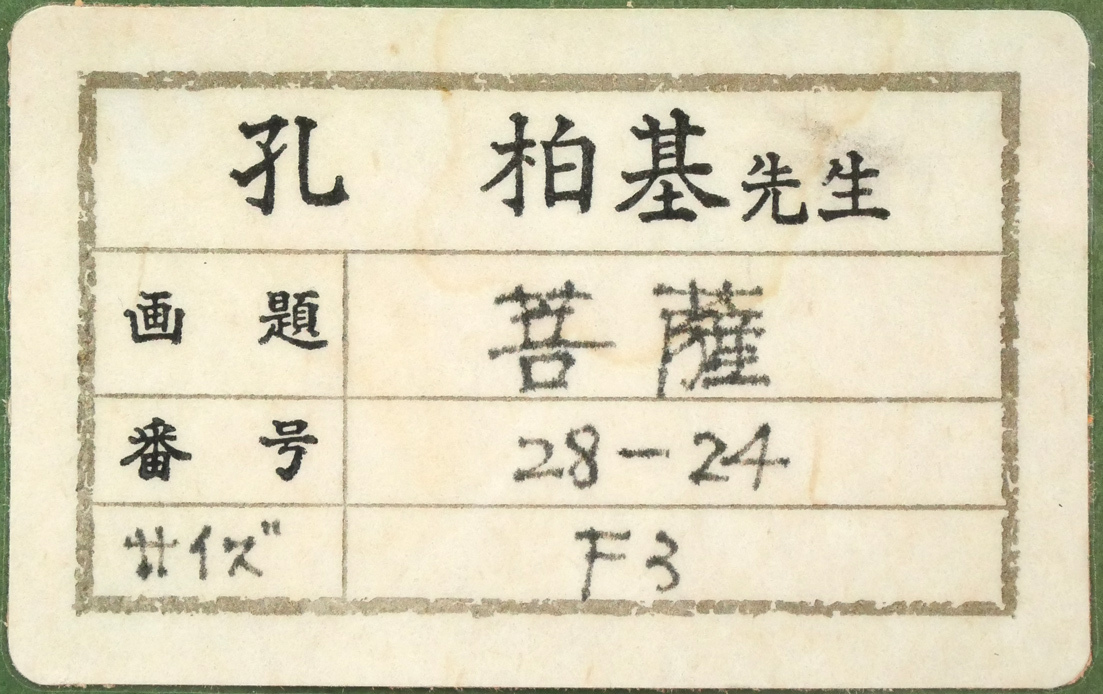 孔 柏基先生
画題 菩薩
番号 28-24
サイズ F3